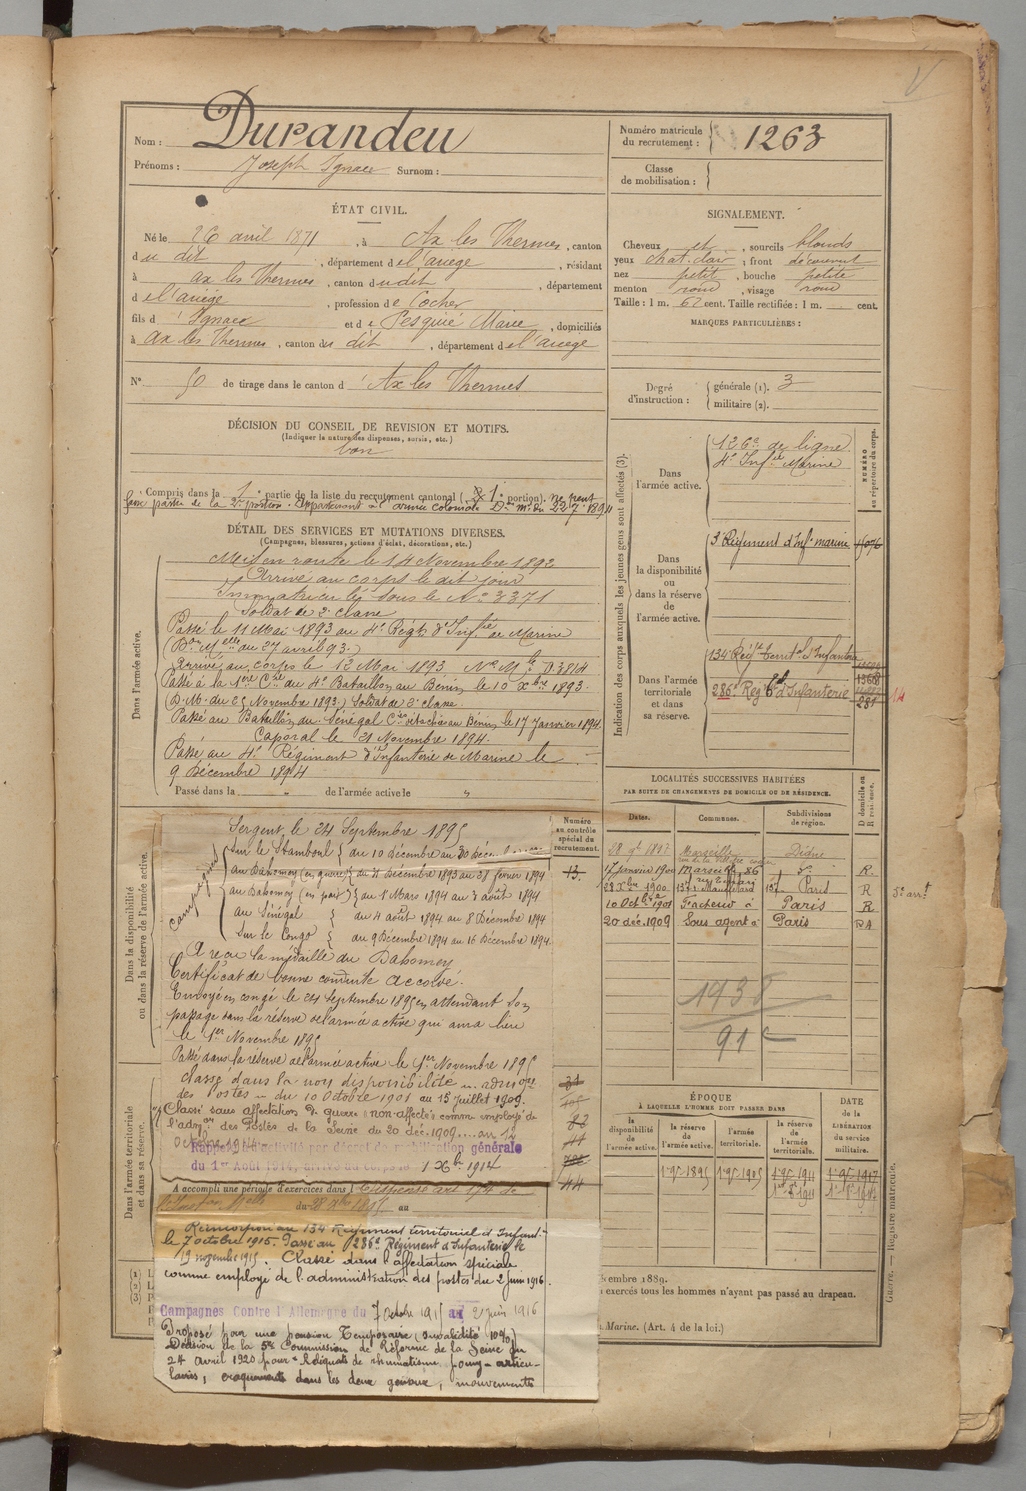 Nom : Durandeu
Prénoms : Joseph Ignace Surnom :
Numéro matricule du recrutement : 1263
Classe de mobilisation :
ÉTAT CIVIL.
Né le 26 avril 1871, à Ax les Thermes, canton
du dit, département de l'ariège, résidant
à ax les Thermes, canton du dit, département
de l'ariège, profession de Cocher
fils d'Ignace et de Pesquié Marie, domiciliés
à ax les Thermes, canton du dit, département de l'ariège
N° 50 de tirage dans le canton d'Ax les Thermes
SIGNALEMENT.
Cheveux et, sourcils blonds
yeux chat. clair, front découvert
nez petit, bouche petite
menton rond, visage rond
Taille : 1 m. 62 cent. Taille rectifiée : 1 m. cent.
MARQUES PARTICULIÈRES :
Degré d'instruction : générale (1). 3
militaire (2).
DÉCISION DU CONSEIL DE REVISION ET MOTIFS.
(Indiquer la nature des dispenses, sursis, etc.)
bon
Compris dans la 1e partie de la liste du recrutement cantonal ( 1e portion). ne peut
faire partie de la 2e portion. Appartenant à l'armée coloniale
DÉTAIL DES SERVICES ET MUTATIONS DIVERSES.
(Campagnes, blessures, actions d'éclat, décorations, etc.)
Dans l'armée active.
Mis en route le 14 Novembre 1892
Arrivé au corps le dit jour
Immatriculé sous le No 3371
Soldat de 2e classe
Passé le 11 Mai 1893 au 4e Régt d'Infrie de Marine
(Don Melle du 27 avril 93.)
Arrivé au corps le 12 Mai 1893 No Mle D.3814
Passé à la 1ère Cie du 4e Bataillon au Bénin le 10 Xbre 1893.
(D.M. du 25 Novembre 1893.) Soldat de 2e classe
Passé au Bataillon du Sénégal Cie détachée au Bénin le 17 Janvier 1894.
Caporal le 21 Novembre 1894.
Passé au 4e Régiment d'Infanterie de Marine le
9 Décembre 1894
Passé dans la " de l'armée active le "
Indication des corps auxquels les jeunes gens sont affectés (3).
NUMÉRO au répertoire du corps.
Dans l'armée active.
126e de ligne
4e Infie Marine
Dans la disponibilité ou dans la réserve de l'armée active.
3e Régiment d'Infie marine
Dans l'armée territoriale et dans sa réserve.
134e Régt territal d'Infanterie
286e Reg d'Infanterie
1368
281
LOCALITÉS SUCCESSIVES HABITÉES
PAR SUITE DE CHANGEMENTS DE DOMICILE OU DE RÉSIDENCE.
Dates. Communes. Subdivisions de région. D domicile ou R résidence.
Marseille Digne
17 janvier 1900 Marseille R.
28 Xbre 1900 Paris R 5e arrt
10 Octbre 1901 Paris R
20 déc. 1909 Sous agent à Paris
1938
Dans la disponibilité ou dans la réserve de l'armée active.
Numéro au contrôle spécial du recrutement.
13.
Sergent le 24 Septembre 1895
Campagnes
Sur le Stamboul du 10 Décembre au 30 Décembre
au Dahomey (en guerre) du 31 Décembre 1893 au 28 février 1894
au Dahomey (en paix) du 1 Mars 1894 au 3 août 1894
au Sénégal du 4 août 1894 au 8 Décembre 1894
Sur le Congo du 9 Décembre 1894 au 16 Décembre 1894
A reçu la médaille du Dahomey
Certificat de bonne conduite accordé.
Envoyé en congé le 24 Septembre 1895 en attendant son
passage dans la réserve de l'armée active qui aura lieu
le 1er Novembre 1895
Passé dans la réserve de l'armée active le 1er Novembre 1895
Classé dans la non disponibilité
des Postes du 10 Octobre 1901 au 15 juillet 1909.
Classé sans affectation de guerre non-affecté comme employé de
l'admon des Postes de la Seine du 20 déc. 1909 au 12
Octobre 1914
Rappelé à l'activité par décret de mobilisation générale
du 1er Août 1914, arrivé au corps le 1 Xbre 1914
Dans l'armée territoriale et dans sa réserve.
A accompli une période d'exercices dans l
du 28 1895 au
Réincorporé au 134e Régiment territorial d'Infant.
le 7 octobre 1915. Passé au 286e Régiment d'Infanterie le
19 novembre 1915. Classé dans l'affectation spéciale
comme employé de l'administration des postes du 2 juin 1916.
Campagnes Contre l'Allemagne du 7 octobre 1915 au 2 juin 1916
Proposé pour une pension Temporaire (Invalidité 10%)
Décision de la 5e Commission de Réforme de la Seine du
24 avril 1920 pour : Reliquats de rhumatisme poly-articu-
laires, craquements dans les deux genoux, mouvements
ÉPOQUE À LAQUELLE L'HOMME DOIT PASSER DANS
la disponibilité de l'armée active.
la réserve de l'armée active.
l'armée territoriale.
la réserve de l'armée territoriale.
DATE de la LIBÉRATION du service militaire.
1 9bre 1895 1 9bre 1905 1 9bre 1911 1 9bre 1917
embre 1889.
à exercés tous les hommes n'ayant pas passé au drapeau.
Marine. (Art. 4 de la loi.)
Guerre. — Registre matricule.